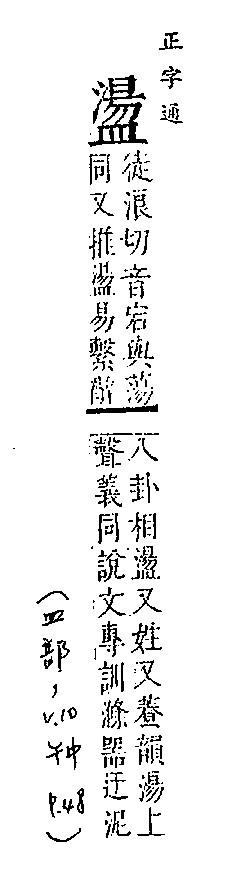 正字通
盪
徒浪切音宕與蕩
同又推盪易繫辭
八卦相盪又姓又養韻湯上
聲義同說文專訓滌器迂泥
(皿部,
v.10
午中
P.48)